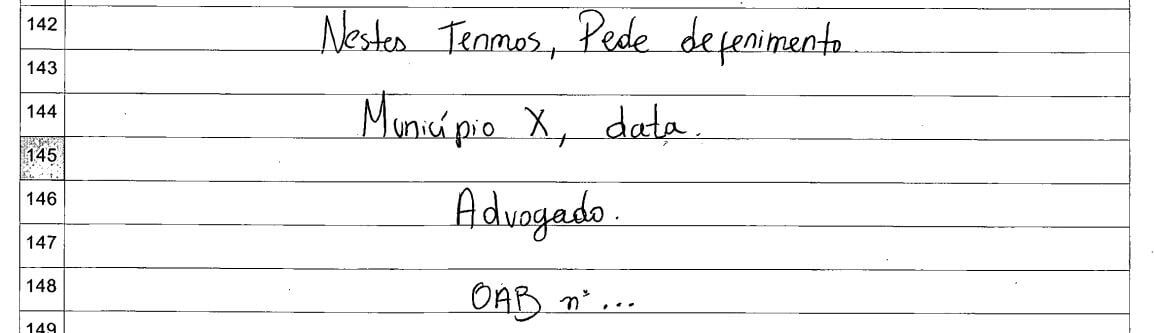 142 Nestes Termos, Pede deferimento
143
144 Município X, data.
145
146 Advogado.
147
148 OAB nº...
149